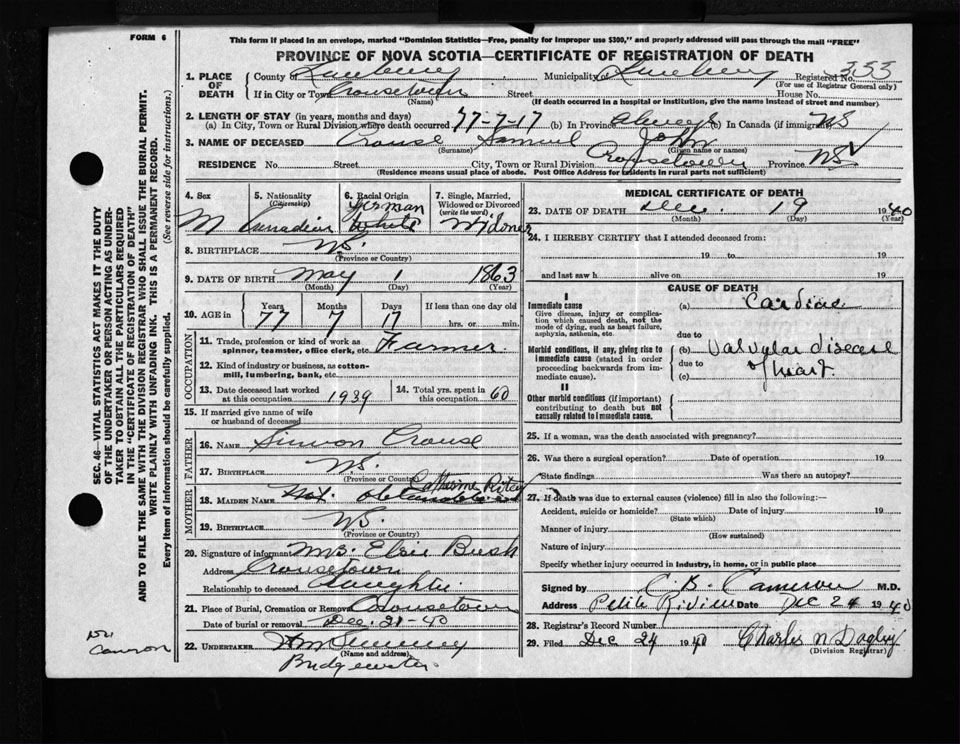 FORM 6
This form if placed in an envelope, marked "Dominion Statistics—Free, penalty for improper use $300," and properly addressed will pass through the mail "FREE"
PROVINCE OF NOVA SCOTIA—CERTIFICATE OF REGISTRATION OF DEATH
1. PLACE OF DEATH County of Lunenburg Municipality of Lunenburg Registered No. 353
(For use of Registrar General only)
If in City or Town Crousetown Street House No.
(Name) (If death occurred in a hospital or institution, give the name instead of street and number)
2. LENGTH OF STAY (in years, months and days)
(a) In City, Town or Rural Division where death occurred 77-7-17 (b) In Province Always (c) In Canada (if immigrant) NS
3. NAME OF DECEASED Crouse Samuel John
(Surname) (Given name or names)
RESIDENCE No. Street City, Town or Rural Division Crousetown Province NS
(Residence means usual place of abode. Post Office Address for residents in rural parts not sufficient)
4. Sex M
5. Nationality (Citizenship) Canadian
6. Racial Origin German White
7. Single, Married, Widowed or Divorced (write the word) Widower
8. BIRTHPLACE NS.
(Province or Country)
9. DATE OF BIRTH May 1 1863
(Month) (Day) (Year)
10. AGE in Years 77 Months 7 Days 17 If less than one day old
hrs. or min.
OCCUPATION
11. Trade, profession or kind of work as spinner, teamster, office clerk, etc. Farmer
12. Kind of industry or business, as cotton-mill, lumbering, bank, etc.
13. Date deceased last worked at this occupation 1939
14. Total yrs. spent in this occupation 60
15. If married give name of wife or husband of deceased
FATHER
16. NAME Simon Crouse
17. BIRTHPLACE NS.
(Province or Country)
MOTHER
18. MAIDEN NAME Not obtainable Catherine
19. BIRTHPLACE NS.
(Province or Country)
20. Signature of informant Mrs. Elsie Bush
Address Crousetown
Relationship to deceased Daughter.
21. Place of Burial, Cremation or Removal Crousetown
Date of burial or removal Dec. 21-40
22. UNDERTAKER
(Name and address)
Bridgewater
MEDICAL CERTIFICATE OF DEATH
23. DATE OF DEATH Dec. 19 1940
(Month) (Day) (Year)
24. I HEREBY CERTIFY that I attended deceased from:
19 to 19
and last saw h alive on 19
CAUSE OF DEATH
I
Immediate cause
Give disease, injury or complication which caused death, not the mode of dying, such as heart failure, asphyxia, asthenia, etc.
(a) Cardiac
due to
Morbid conditions, if any, giving rise to immediate cause (stated in order proceeding backwards from immediate cause).
(b) Valvular disease
due to of heart.
(c)
II
Other morbid conditions (if important) contributing to death but not causally related to immediate cause.
25. If a woman, was the death associated with pregnancy?
26. Was there a surgical operation? Date of operation 19
State findings Was there an autopsy?
27. If death was due to external causes (violence) fill in also the following:—
Accident, suicide or homicide? Date of injury 19
(State which)
Manner of injury
(How sustained)
Nature of injury
Specify whether injury occurred in industry, in home, or in public place
Signed by C. B. Cameron M.D.
Address Petite Riviere Date Dec 24 1940
28. Registrar's Record Number
29. Filed Dec 24 1940 Charles N Dagley
(Division Registrar)
SEC. 46—VITAL STATISTICS ACT MAKES IT THE DUTY OF THE UNDERTAKER OR PERSON ACTING AS UNDERTAKER TO OBTAIN ALL THE PARTICULARS REQUIRED IN THE "CERTIFICATE OF REGISTRATION OF DEATH" AND TO FILE THE SAME WITH THE DIVISION REGISTRAR WHO SHALL ISSUE THE BURIAL PERMIT.
WRITE PLAINLY WITH UNFADING INK. THIS IS A PERMANENT RECORD.
Every item of information should be carefully supplied. (See reverse side for instructions.)